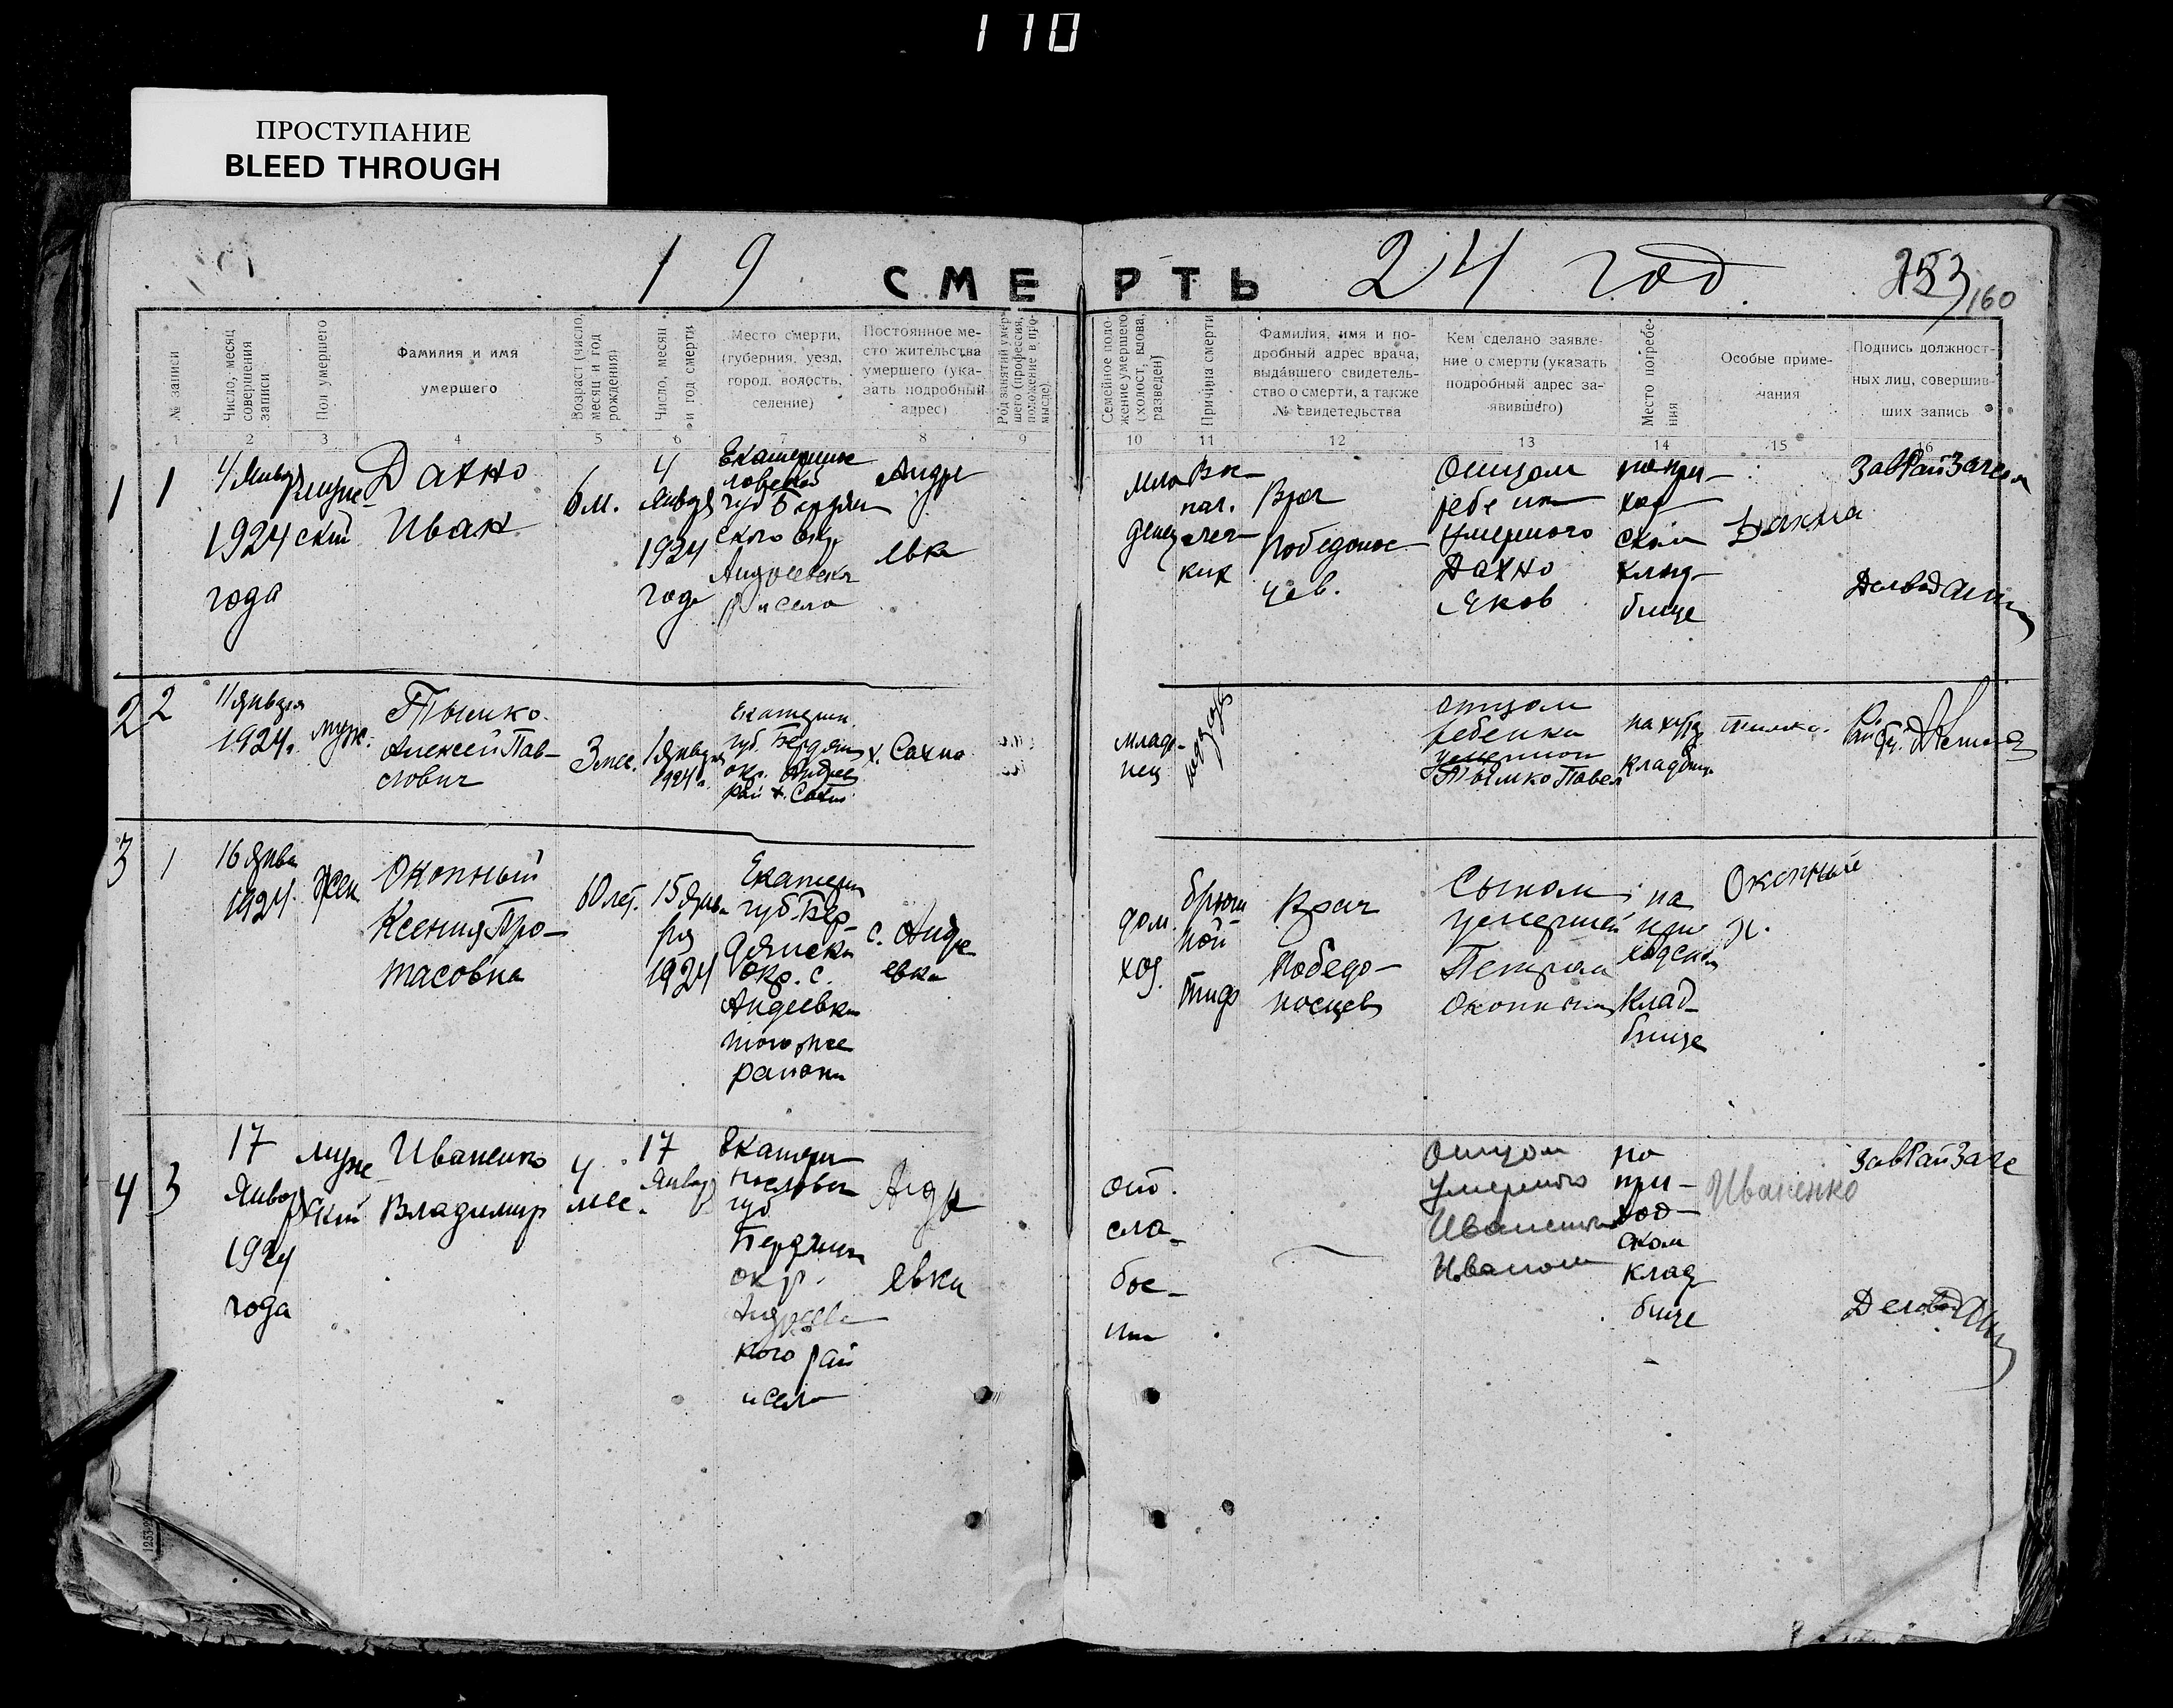 110
ПРОСТУПАНИЕ
BLEED THROUGH
19 СМЕРТЬ 24 год
253
160
№ записи
Число, месяц
совершения
записи
Пол умершего
Фамилия и имя
умершего
Возраст (число,
месяц и год
рождения)
Число, месяц
и год смерти
Место смерти,
(губерния, уезд,
город, волость,
селение)
Постоянное ме-
сто жительства
умершего (ука-
зать подробный
адрес)
Род занятий умер-
шего (профессия,
положение в про-
мысле)
Семейное поло-
жение умершего
(холост, вдова,
разведен)
Причина смерти
Фамилия, имя и по-
дробный адрес врача,
выдавшего свидетель-
ство о смерти, а также
№ свидетельства
Кем сделано заявле-
ние о смерти (указать
подробный адрес за-
явившего)
Место погребе-
ния
Особые приме-
чания
Подпись должност-
ных лиц, совершив-
ших запись
1 2 3 4 5 6 7 8 9 10 11 12 13 14 15 16
1 1
4 Январ
1924
года
муже-
ский
Дахно
Иван
6 м.
4
Январ
1924
года
Екатерино
славской
губ Бердян
ского окр
Андреевск
р и села
Андре
евка
мла
денец
Вос-
пал.
лег-
ких
Врач
Победонос
цев.
Отцом
ребенка
умершого
Дахно
Яков
на при-
ход
ском
клад-
бище
Дахна
ЗавРайЗагса
Деловод
2 2
11 января
1924г.
муж.
Тымко
Алексей Пав-
лович
3 мес.
1 января
1924 г.
Екатерин.
губ. Бердян
окр. Андреев
рай х. Сахно
х. Сахно
младе-
нец
отцом
ребенка
умершого
Тымко Павел
на хут
кладбищ
Тымко.
3 1
16 Янва
1924
жен
Окопный
Ксения Про-
тасовна
60 лет.
15 Янва
ря
1924
Екатерин
губ. Бер-
дянска
окр. с.
Андеевка
того же
района
с. Андре
евка
дом.
хоз.
брюш
ной
тиф
Врач
Победо-
носцев
Сыном
умершей
Петром
Окопным
на
при
ходском
клад-
бище
Окопный
П.
4 3
17
Январ
1924
года
муже
ский
Иваненко
Владимир
4
мес.
17
Январ
Екатери
нославск
губ
Бердянск
окр.
Андреев
кого рай
и села
Андре
евка
от.
сла-
бос-
ти
Отцом
умершого
Иваненко
Иваном
на
при-
ход-
ском
клад
бище
Иваненко
ЗавРайЗаге
Деловод